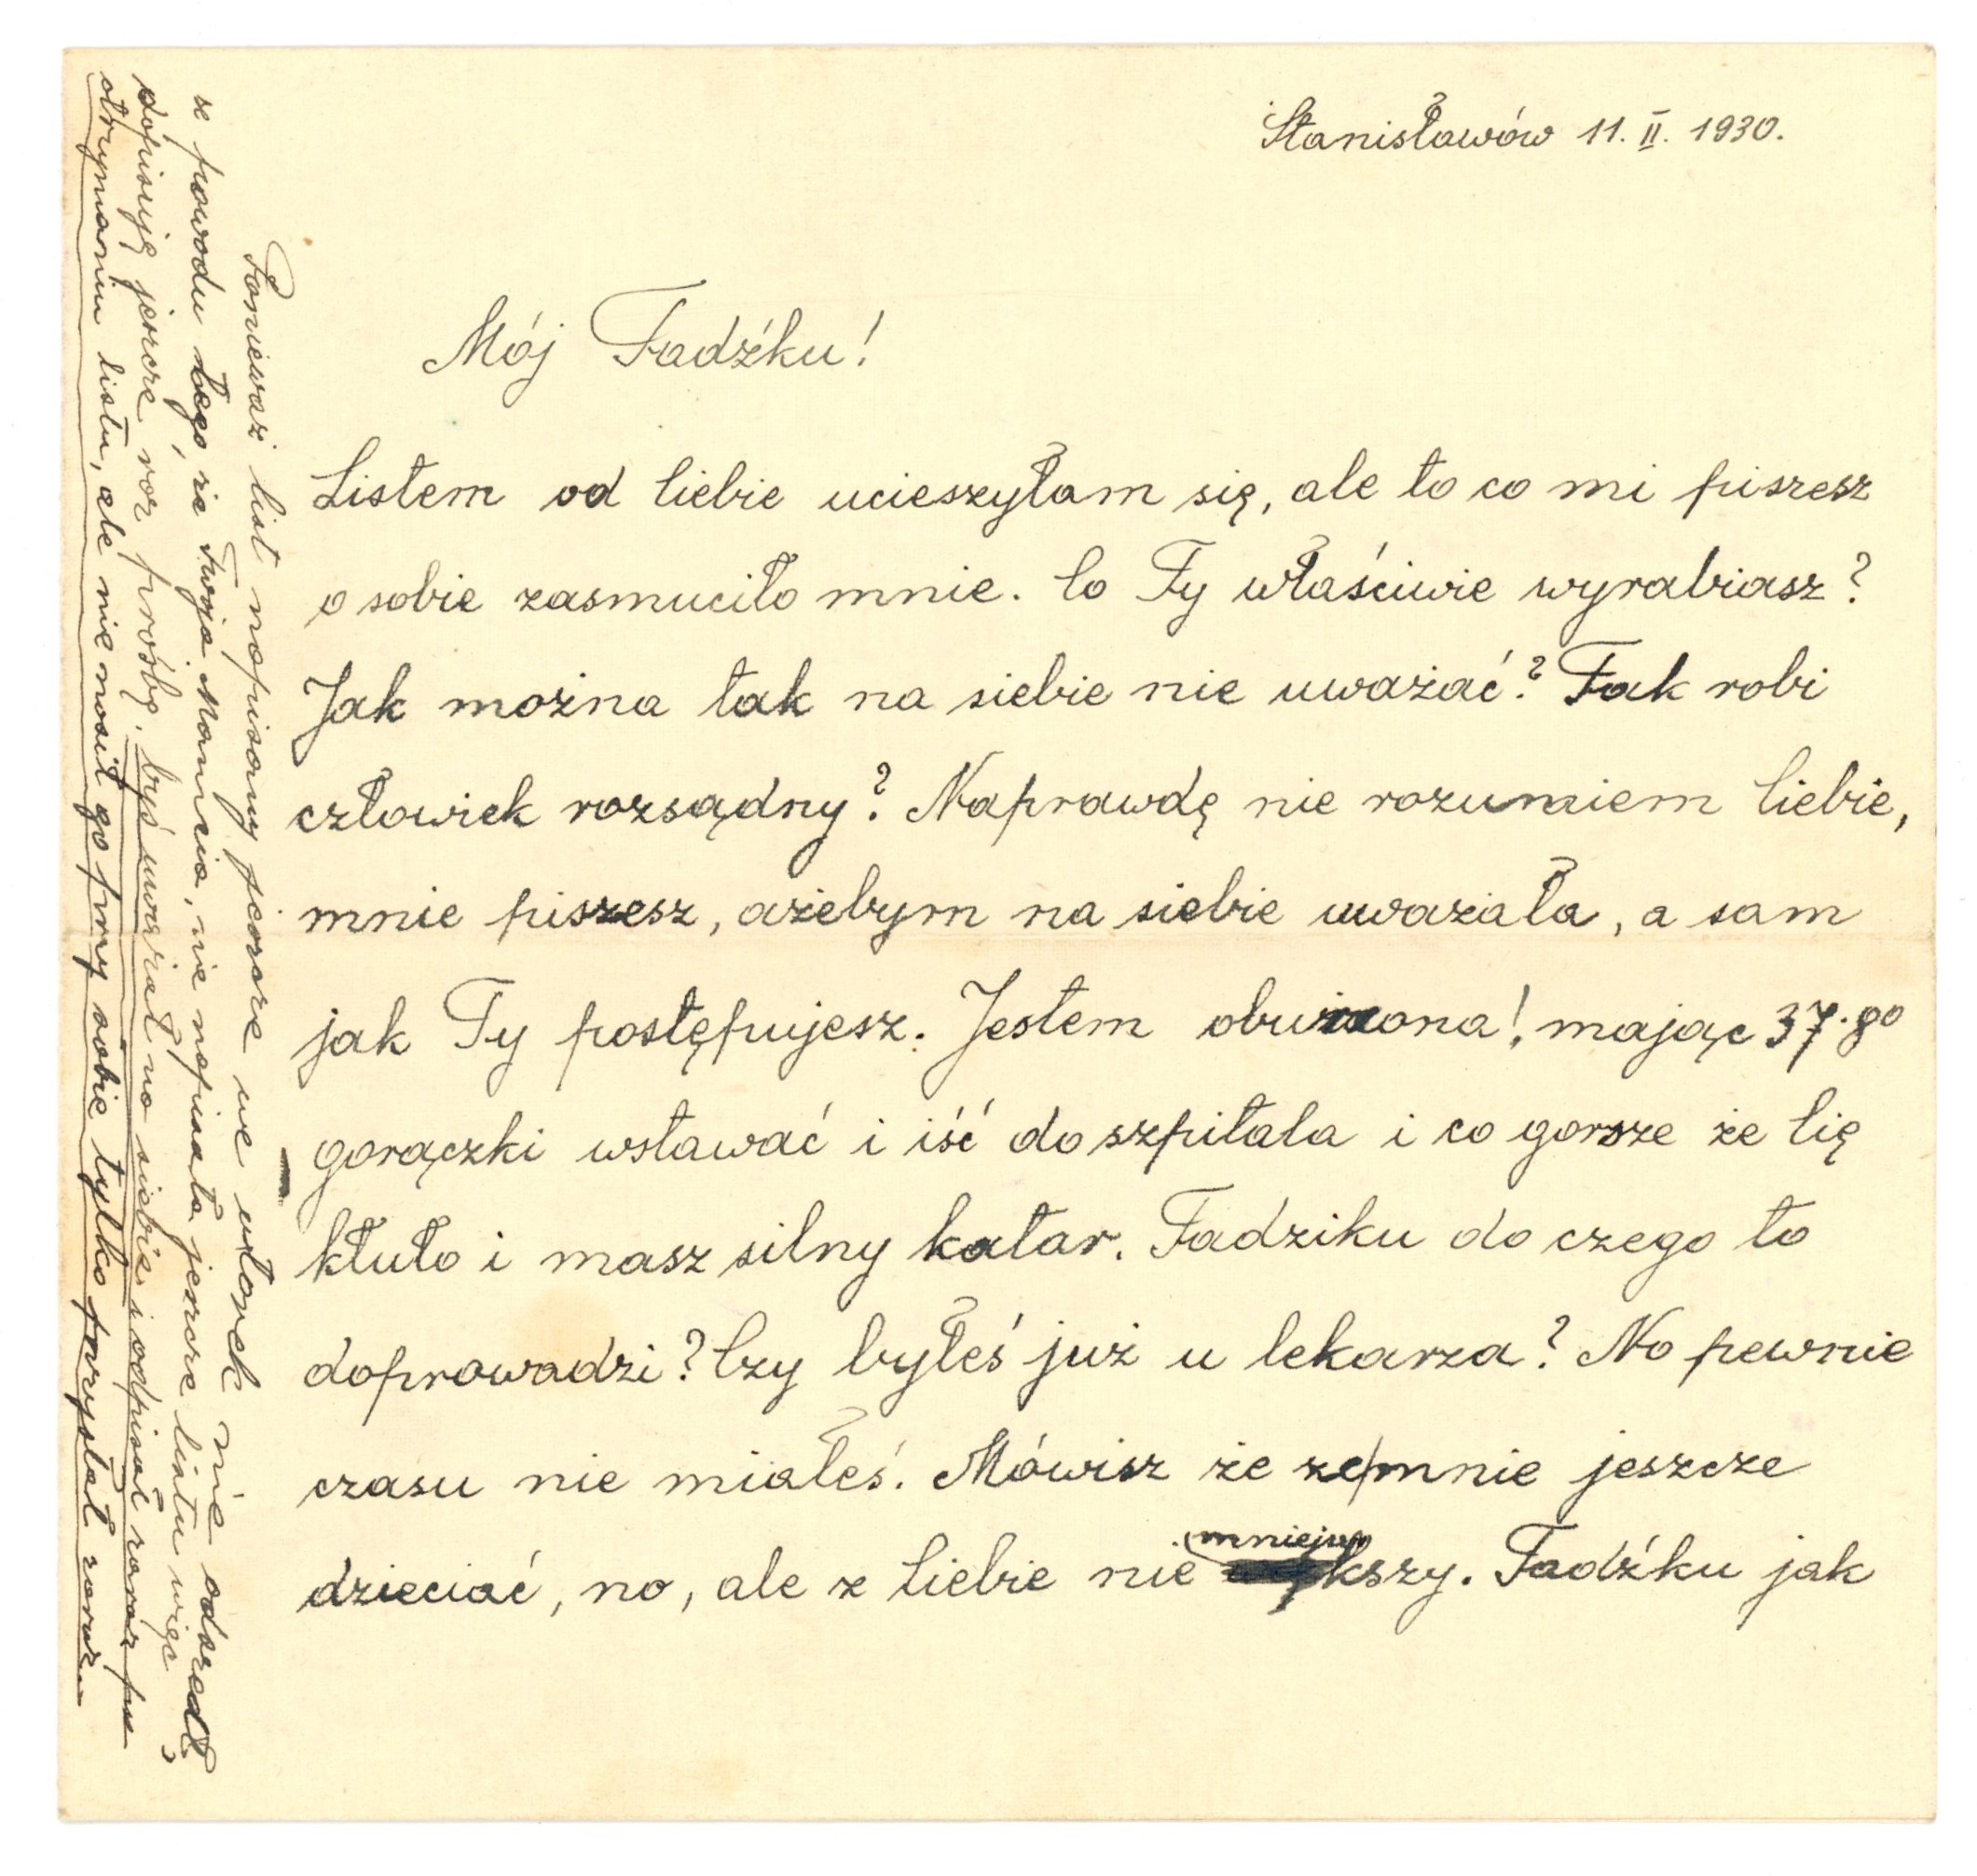 Stanisławów 11. II. 1930.
Mój Tadźku!
Listem od Ciebie ucieszyłam się, ale to co mi piszesz
o sobie zasmuciło mnie. Co Ty właściwie wyrabiasz?
Jak można tak na siebie nie uważać? Tak robi
człowiek rozsądny? Naprawdę nie rozumiem Ciebie,
mnie piszesz, ażebym na siebie uważała, a sam
jak Ty postępujesz. Jestem oburzona! mając 37.80
gorączki wstawać i iść do szpitala i co gorsze że Cię
kłuło i masz silny katar. Tadziku do czego to
doprowadzi? Czy byłeś już u lekarza? No pewnie
czasu nie miałeś. Mówisz że ze/mnie jeszcze
dzieciać, no, ale z Ciebie nie mniejszy. Tadźku jak
Ponieważ list napisany jeszcze we wtorek nie odszedł
z powodu tego, że Twoja Mamcia, nie napisała jeszcze listu więc
dopisuję jeszcze raz prośbę, byś uważał na siebie i odpisał zaraz po
otrzymaniu listu, ale nie nosił go przy sobie tylko przysłał zaraz.